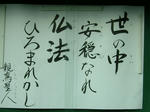 世の中
安穏なれ
仏法
ひろまれかし
親鸞聖人